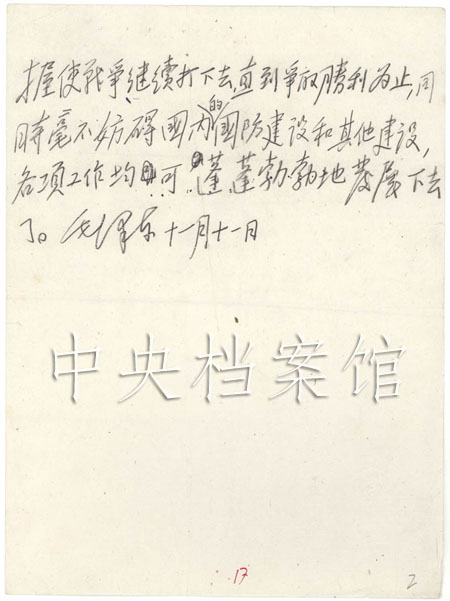 握使战爭继续打下去,直到爭取勝利为止,同
時毫不妨碍国内的国防建设和其他建设,
各項工作均可蓬蓬勃勃地發展下去
了。毛泽东十一月十一日
中央档案馆
17
2